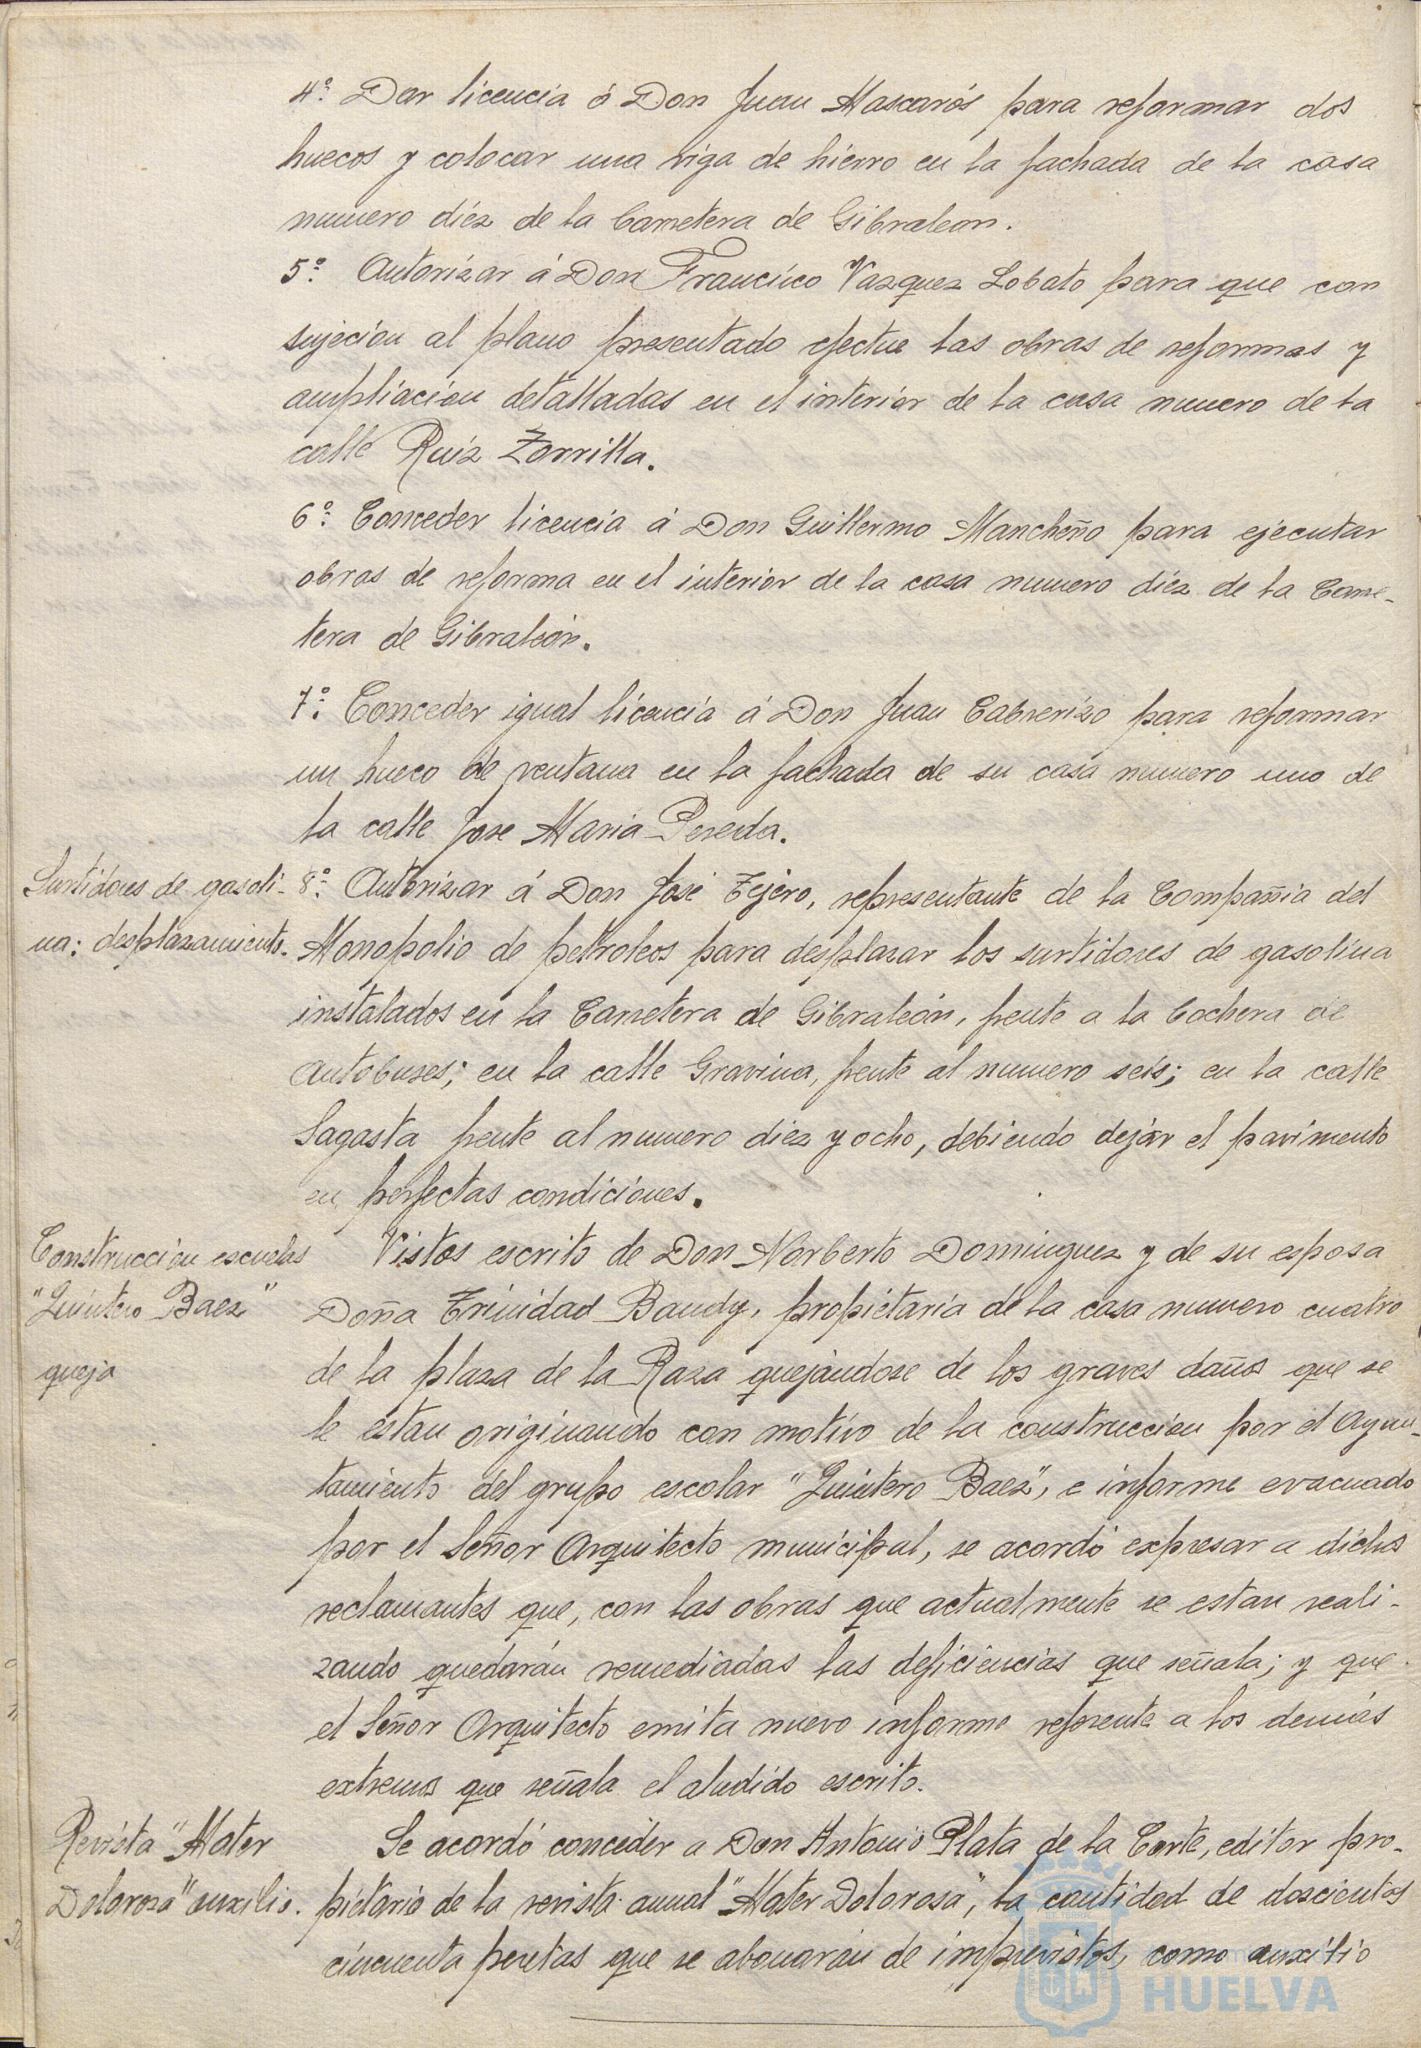 4º: Dar licencia á Don Juan Mascarós para reformar dos
huecos y colocar una viga de hierro en la fachada de la casa
numero diéz de la Carretera de Gibraleon.
5º: Autorizar á Don Francisco Vazquez Lobato para que con
sujecion al plano presentado efectue las obras de reformas y
ampliacion detalladas en el interior de la casa numero de la
calle Ruiz Zorrilla.
6º: Conceder licencia á Don Guillermo Mancheño para ejecutar
obras de reforma en el interior de la casa numero diéz de la Carre-
tera de Gibraleón.
7º: Conceder igual licencia á Don Juan Cabrerizo para reformar
un hueco de ventana en la fachada de su casa numero uno de
la calle Jose Maria Pereda.
Surtidores de gasoli-
na: desplazamiento.
8º: Autorizar á Don José Tejero, representante de la Compañia del
Monopolio de petroleos para desplazar los surtidores de gasolina
instalados en la Carretera de Gibraleón, frente a la Cochera de
autobuses; en la calle Gravina, frente al numero seis; en la calle
Sagasta frente al numero diez y ocho, debiendo dejar el pavimento
en perfectas condiciones.
Construccion escuelas
"Quintero Baez"
queja
Vistos escrito de Don Norberto Dominguez y de su esposa
Doña Trinidad Baudy, propietaria de la casa numero cuatro
de la plaza de la Raza quejándose de los graves daños que se
le estan originando con motivo de la construccion por el Ayun-
tamiento del grupo escolar "Quintero Baez", e informe evacuado
por el Señor Arquitecto municipal, se acordó expresar a dichos
reclamantes que, con las obras que actualmente se estan reali-
zando quedarán remediadas las deficiencias que señala; y que
el Señor Arquitecto emita nuevo informe referente a los demás
extremos que señala el aludido escrito.
Revista "Mater
Dolorosa" auxilio.
Se acordó conceder a Don Antonio Plata de la Corte, editor pro-
pietario de la revista anual "Mater Dolorosa", la cantidad de doscientas
cincuenta pesetas que se abonarán de imprevistos, como auxilio
HUELVA